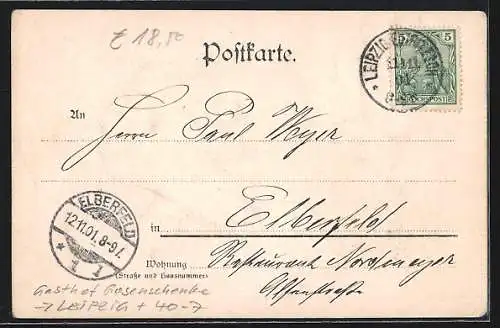 € 18,50
Postkarte.
5
LEIPZIG
An
Herrn Paul Meyer
ELBERFELD
12.11.01. 8-9 V.
* 1 1
in Elberfeld
Wohnung Restaurant Nordmeyer
(Straße und Hausnummer)
Gasthof Gosenschenke
→ Leipzig + 40-7